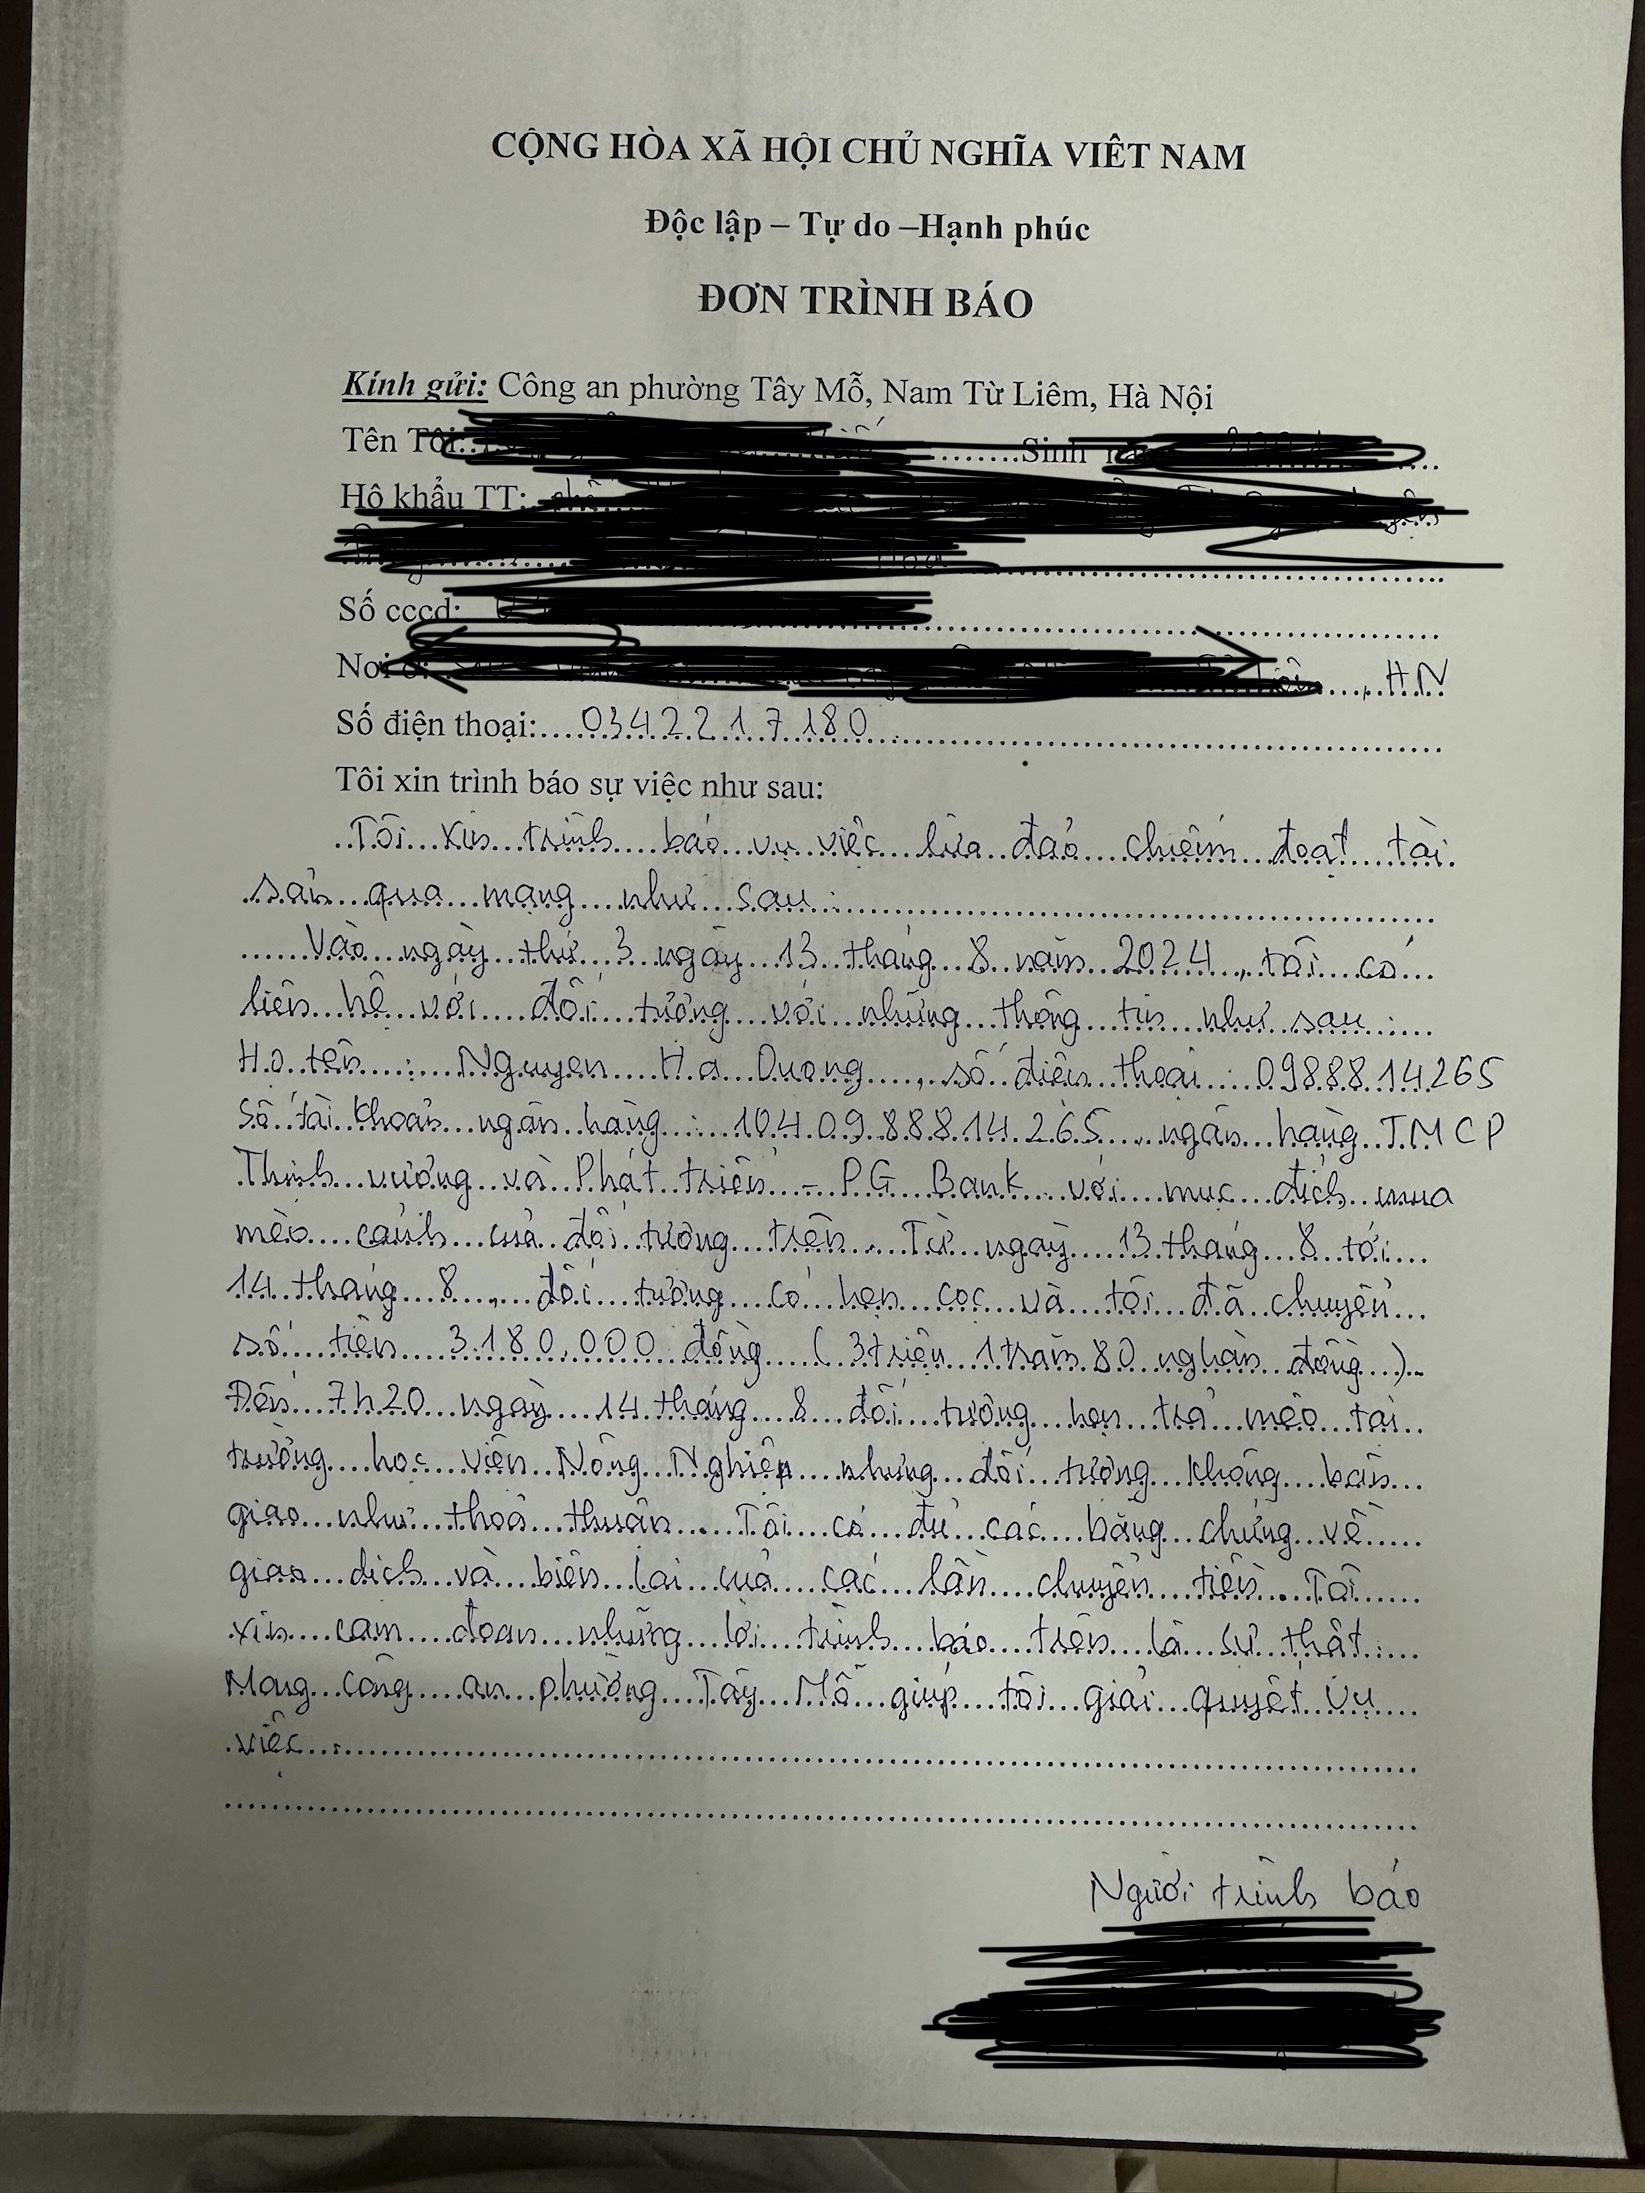 CỘNG HÒA XÃ HỘI CHỦ NGHĨA VIÊT NAM
Độc lập – Tự do –Hạnh phúc
ĐƠN TRÌNH BÁO
Kính gửi: Công an phường Tây Mỗ, Nam Từ Liêm, Hà Nội
Tên Tôi: Sinh
Hộ khẩu TT:
Số cccd:
Nơi ở: , HN
Số điện thoại: 0342217180
Tôi xin trình báo sự việc như sau:
Tôi xin trình báo vụ việc lừa đảo chiếm đoạt tài
sản qua mạng như sau :
Vào ngày thứ 3 ngày 13 tháng 8 năm 2024, tôi có
liên hệ với đối tượng với những thông tin như sau :
Họ tên : Nguyen Ha Duong, số điện thoại : 0988814265
Số tài khoản ngân hàng : 104.0988814265, ngân hàng TMCP
Thịnh vượng và Phát triển - PG Bank với mục đích mua
mèo cảnh của đối tượng trên. Từ ngày 13 tháng 8 tới
14 tháng 8, đối tượng có hẹn cọc và tôi đã chuyển
số tiền 3.180.000 đồng ( 3 triệu 1 trăm 80 nghàn đồng )
Đến 7h20 ngày 14 tháng 8 đối tượng hẹn trả mèo tại
trường học viện Nông Nghiệp nhưng đối tượng không bàn
giao như thoả thuận. Tôi có đủ các bằng chứng về
giao dịch và biên lai của các lần chuyển tiền. Tôi
xin cam đoan những lời trình báo trên là sự thật.
Mong công an phường Tây Mỗ giúp tôi giải quyết vụ
việc.
Người trình báo